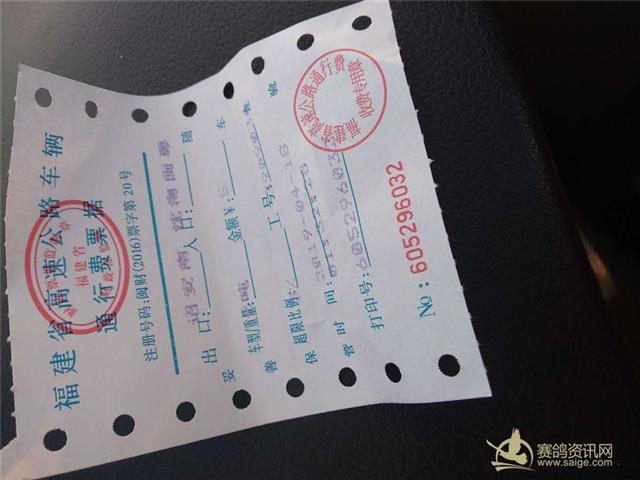 福建省高速公路车辆
通行费票据
注册号码:闽财(2016)票字第20号
诏安南 沈海闽粤
出 口: 入 口: 随
妥 车型/重量: 吨 金额¥: 5 车
善 超限比例: / 工号: 查
保 2019-04-18 验
管 时 间:
打印号: 605296032
No: 605296032
福建省
福建省高速公路通行费
收费专用章
赛鸽资讯网
www.saige.com